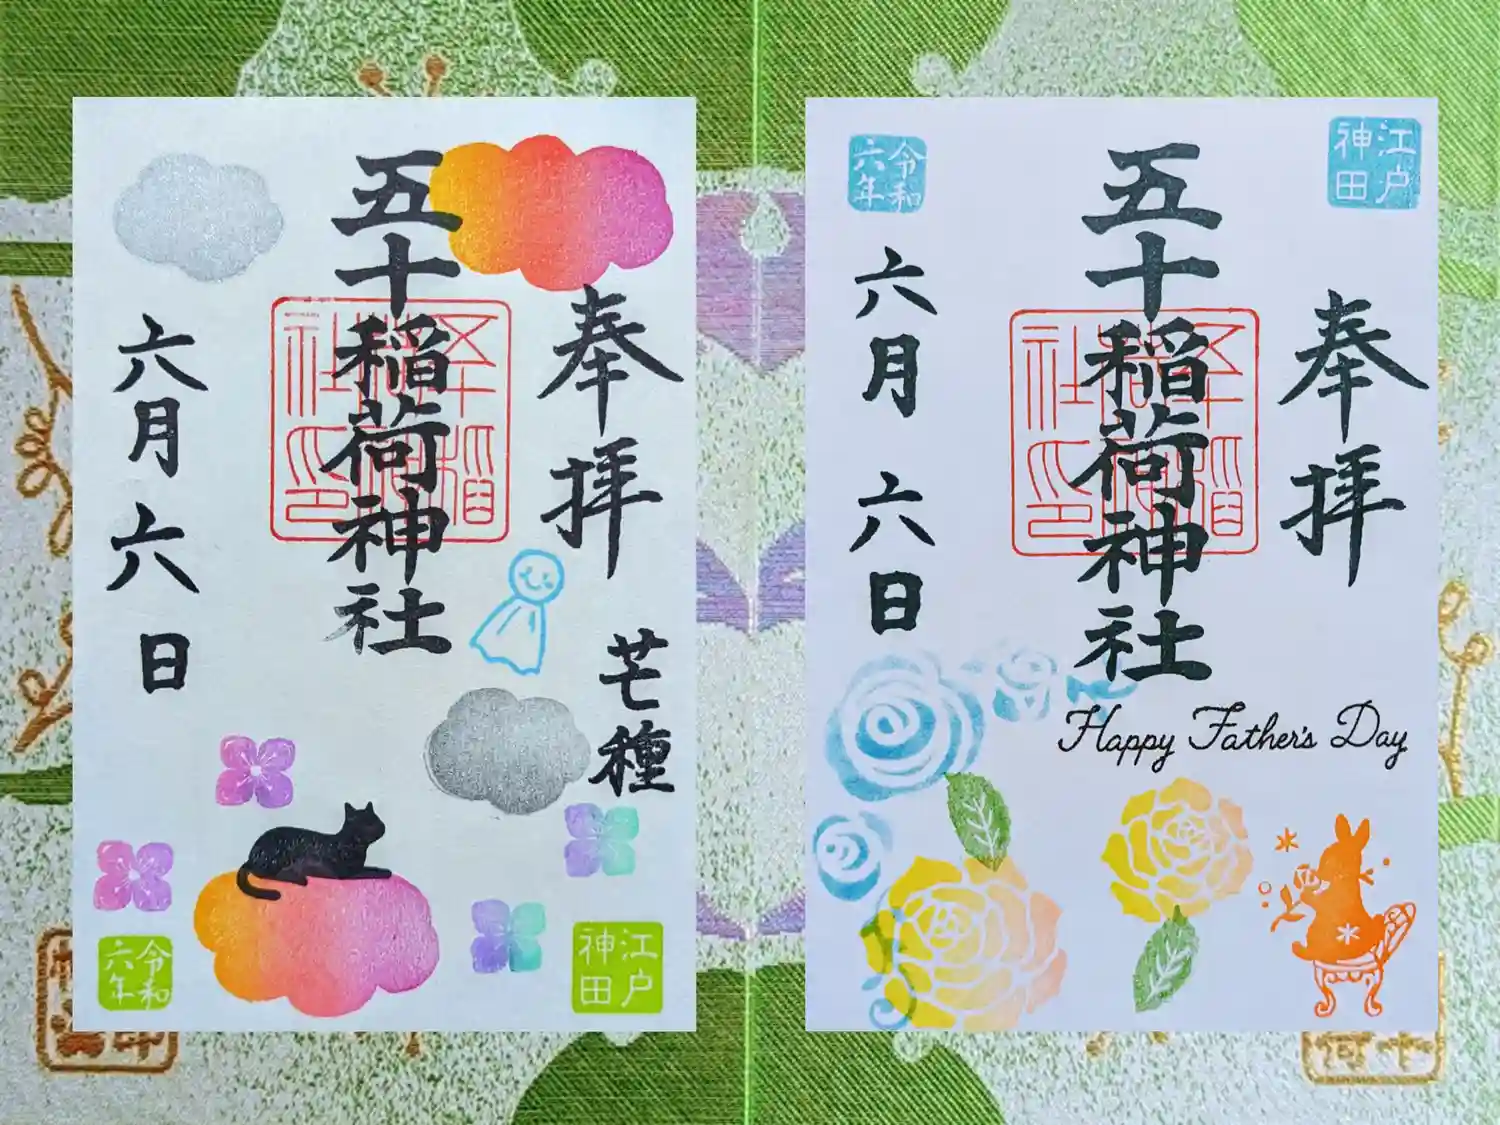 奉拝
芒種
五十稲荷神社
六月六日
令和
六年
江戸
神田
江戸
神田
奉拝
五十稲荷神社
令和
六年
六月六日
Happy Father's Day